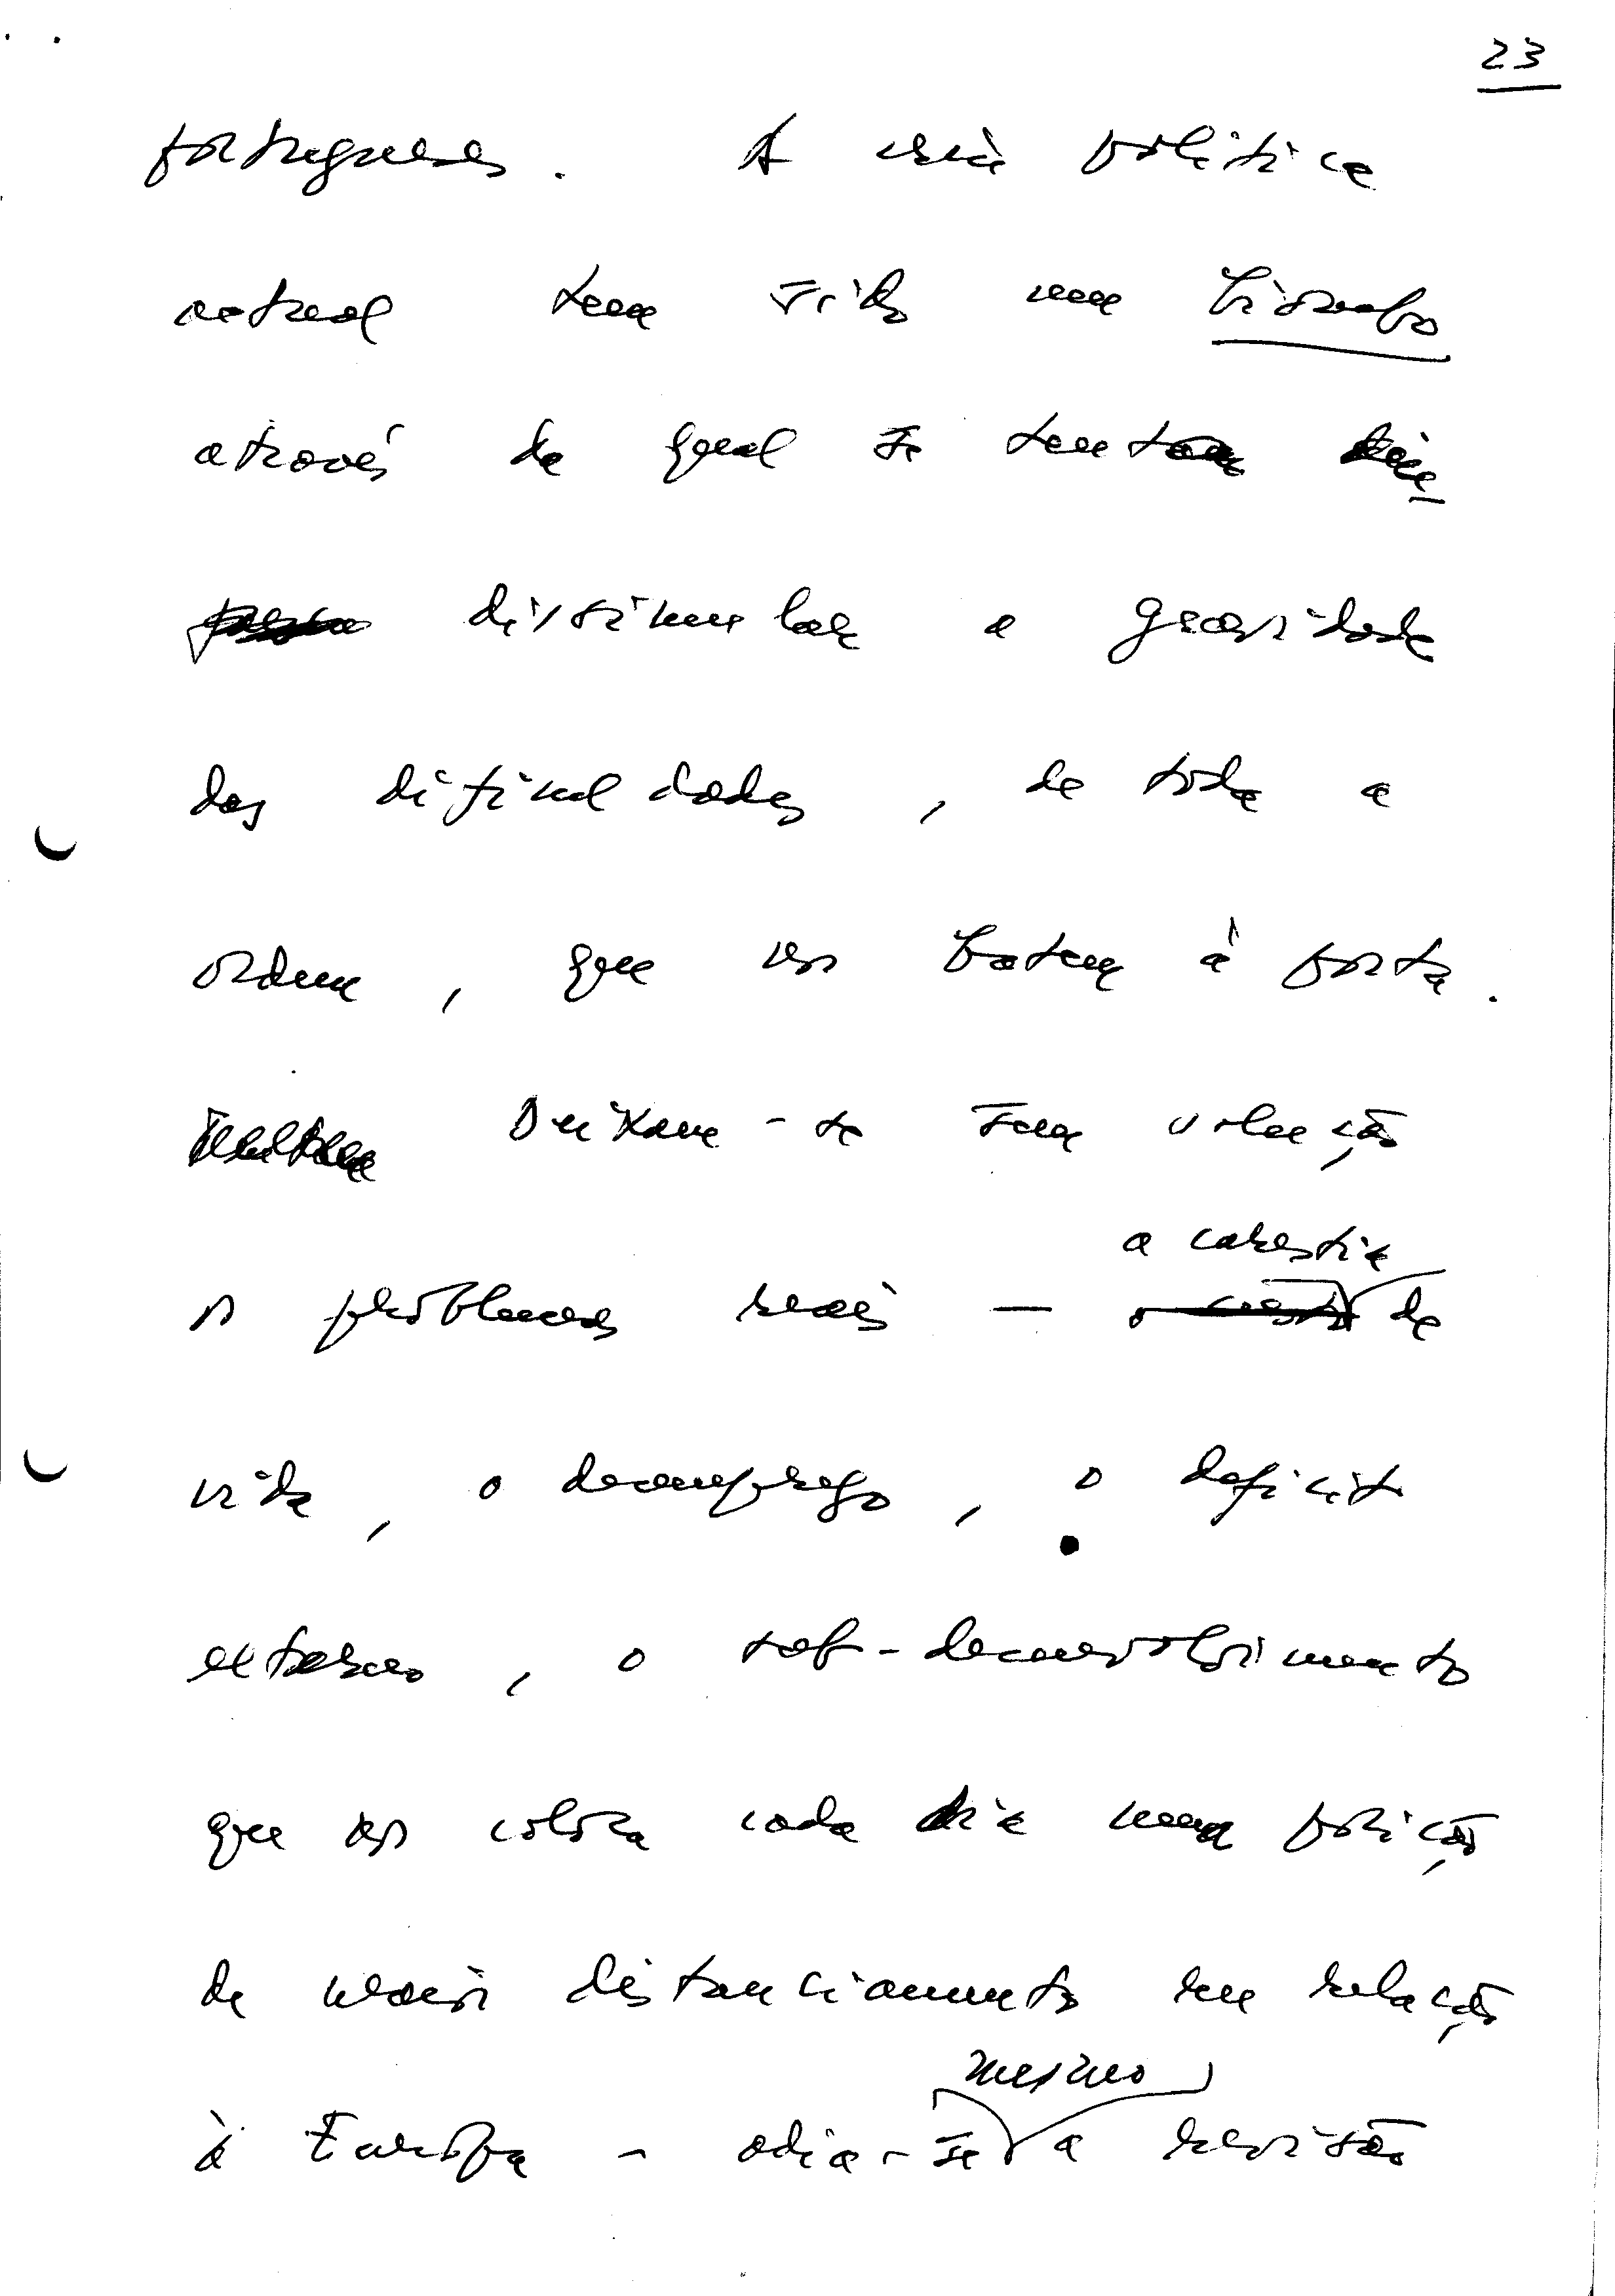 23
portugueses. A vida política
actual tem sido um biombo
através do qual se tenta
dissimular a gravidade
das dificuldades, de toda a
ordem, que nos batem à porta.
Deixam-se sem solução
os problemas reais — a carestia da
vida, o desemprego, o deficit
externo, o sub-desenvolvimento
que nos coloca cada dia numa posição
de maior distanciamento em relação
à Europa - adia-se mesmo a revisão